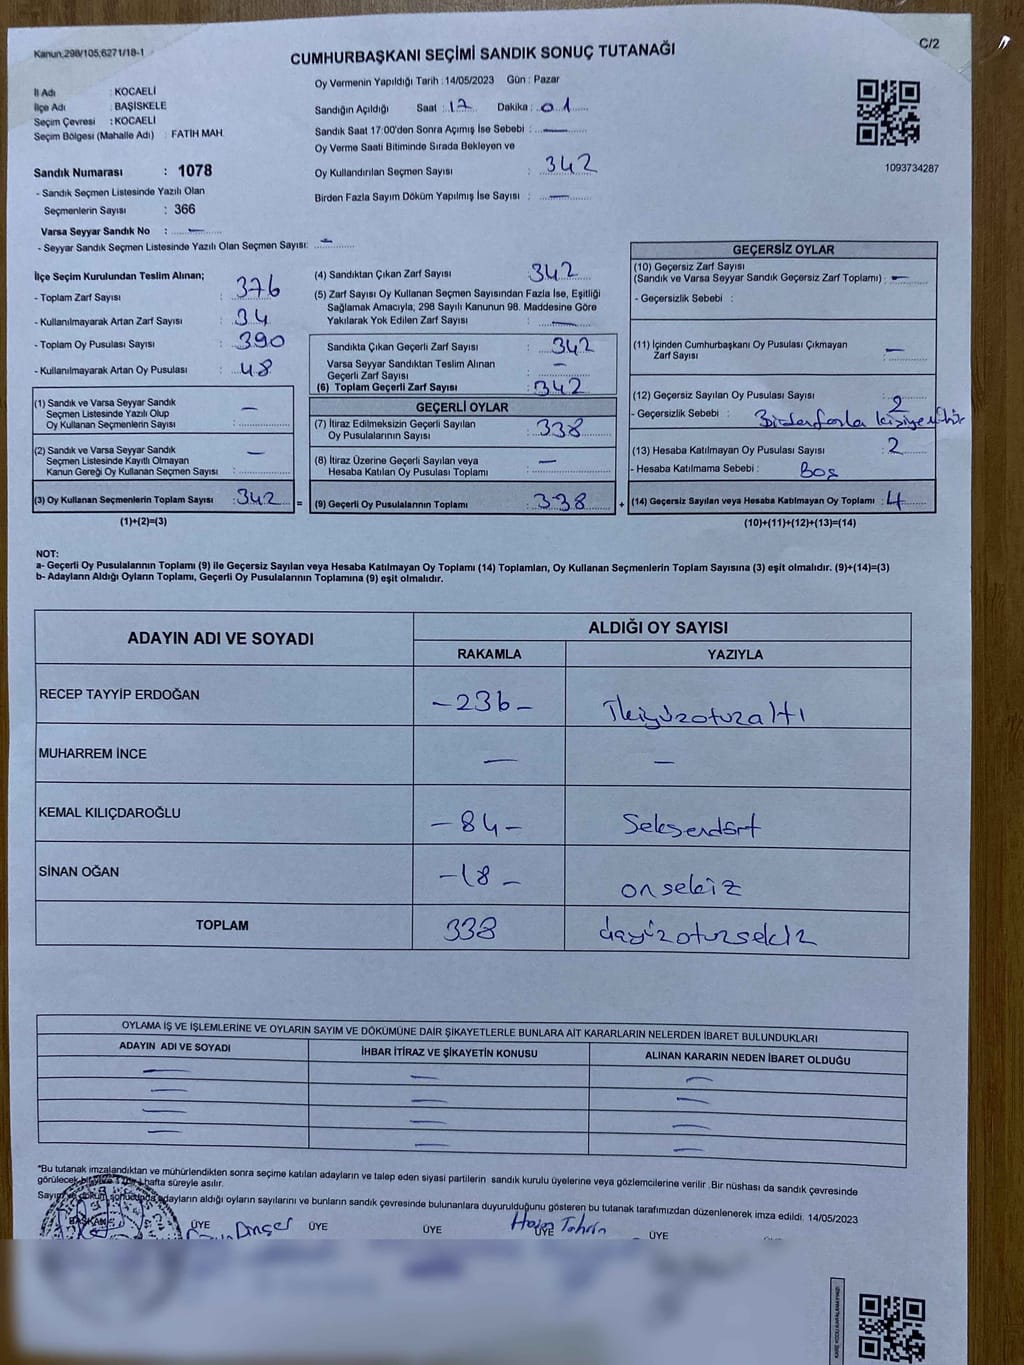 Kanun,298/105,6271/18-1
C/2
CUMHURBAŞKANI SEÇİMİ SANDIK SONUÇ TUTANAĞI
İl Adı : KOCAELİ
İlçe Adı : BAŞİSKELE
Seçim Çevresi : KOCAELİ
Seçim Bölgesi (Mahalle Adı) : FATİH MAH.
Sandık Numarası : 1078
- Sandık Seçmen Listesinde Yazılı Olan
Seçmenlerin Sayısı : 366
Varsa Seyyar Sandık No : —
- Seyyar Sandık Seçmen Listesinde Yazılı Olan Seçmen Sayısı: —
Oy Vermenin Yapıldığı Tarih : 14/05/2023 Gün : Pazar
Sandığın Açıldığı Saat : 17 Dakika : 01
Sandık Saat 17:00'den Sonra Açımış İse Sebebi : —
Oy Verme Saati Bitiminde Sırada Bekleyen ve
Oy Kullandırılan Seçmen Sayısı : 342
Birden Fazla Sayım Döküm Yapılmış İse Sayısı : —
1093734287
İlçe Seçim Kurulundan Teslim Alınan;
- Toplam Zarf Sayısı : 376
- Kullanılmayarak Artan Zarf Sayısı : 34
- Toplam Oy Pusulası Sayısı : 390
- Kullanılmayarak Artan Oy Pusulası : 48
(1) Sandık ve Varsa Seyyar Sandık
Seçmen Listesinde Yazılı Olup
Oy Kullanan Seçmenlerin Sayısı : —
(2) Sandık ve Varsa Seyyar Sandık
Seçmen Listesinde Kayıtlı Olmayan
Kanun Gereği Oy Kullanan Seçmen Sayısı : —
(3) Oy Kullanan Seçmenlerin Toplam Sayısı : 342 =
(1)+(2)=(3)
(4) Sandıktan Çıkan Zarf Sayısı : 342
(5) Zarf Sayısı Oy Kullanan Seçmen Sayısından Fazla İse, Eşitliği
Sağlamak Amacıyla, 298 Sayılı Kanunun 98. Maddesine Göre
Yakılarak Yok Edilen Zarf Sayısı : —
Sandıkta Çıkan Geçerli Zarf Sayısı : 342
Varsa Seyyar Sandıktan Teslim Alınan
Geçerli Zarf Sayısı : —
(6) Toplam Geçerli Zarf Sayısı : 342
GEÇERLİ OYLAR
(7) İtiraz Edilmeksizin Geçerli Sayılan
Oy Pusulalarının Sayısı : 338
(8) İtiraz Üzerine Geçerli Sayılan veya
Hesaba Katılan Oy Pusulası Toplamı : —
(9) Geçerli Oy Pusulalarının Toplamı : 338 +
GEÇERSİZ OYLAR
(10) Geçersiz Zarf Sayısı
(Sandık ve Varsa Seyyar Sandık Geçersiz Zarf Toplamı) : —
- Geçersizlik Sebebi :
(11) İçinden Cumhurbaşkanı Oy Pusulası Çıkmayan
Zarf Sayısı : —
(12) Geçersiz Sayılan Oy Pusulası Sayısı : 2
- Geçersizlik Sebebi : Birden fazla kişiye
(13) Hesaba Katılmayan Oy Pusulası Sayısı : 2
- Hesaba Katılmama Sebebi : Boş
(14) Geçersiz Sayılan veya Hesaba Katılmayan Oy Toplamı : 4
(10)+(11)+(12)+(13)=(14)
NOT:
a- Geçerli Oy Pusulalarının Toplamı (9) ile Geçersiz Sayılan veya Hesaba Katılmayan Oy Toplamı (14) Toplamları, Oy Kullanan Seçmenlerin Toplam Sayısına (3) eşit olmalıdır. (9)+(14)=(3)
b- Adayların Aldığı Oyların Toplamı, Geçerli Oy Pusulalarının Toplamına (9) eşit olmalıdır.
ADAYIN ADI VE SOYADI
ALDIĞI OY SAYISI
RAKAMLA YAZIYLA
RECEP TAYYİP ERDOĞAN -236- İkiyüzotuzaltı
MUHARREM İNCE — —
KEMAL KILIÇDAROĞLU -84- Seksendört
SİNAN OĞAN -18- onsekiz
TOPLAM 338 üçyüzotuzsekiz
OYLAMA İŞ VE İŞLEMLERİNE VE OYLARIN SAYIM VE DÖKÜMÜNE DAİR ŞİKAYETLERLE BUNLARA AİT KARARLARIN NELERDEN İBARET BULUNDUKLARI
ADAYIN ADI VE SOYADI İHBAR İTİRAZ VE ŞİKAYETİN KONUSU ALINAN KARARIN NEDEN İBARET OLDUĞU
— — —
— — —
— — —
— — —
*Bu tutanak imzalandıktan ve mühürlendikten sonra seçime katılan adayların ve talep eden siyasi partilerin sandık kurulu üyelerine veya gözlemcilerine verilir .Bir nüshası da sandık çevresinde
görülecek bir yere hafta süreyle asılır.
Sayım ve döküm sonucunda adayların aldığı oyların sayılarını ve bunların sandık çevresinde bulunanlara duyurulduğunu gösteren bu tutanak tarafımızdan düzenlenerek imza edildi. 14/05/2023
BAŞKAN ÜYE Dinçer ÜYE ÜYE ÜYE ÜYE